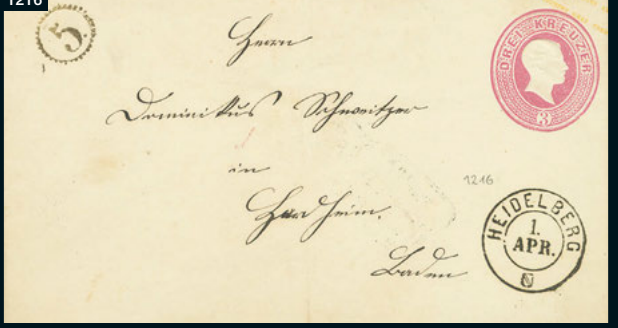 1216
5.
DREI KREUZER
3
Herrn
Dominikus Schweitzer
in
Hardheim.
Baden
1216
HEIDELBERG
1.
APR.
N